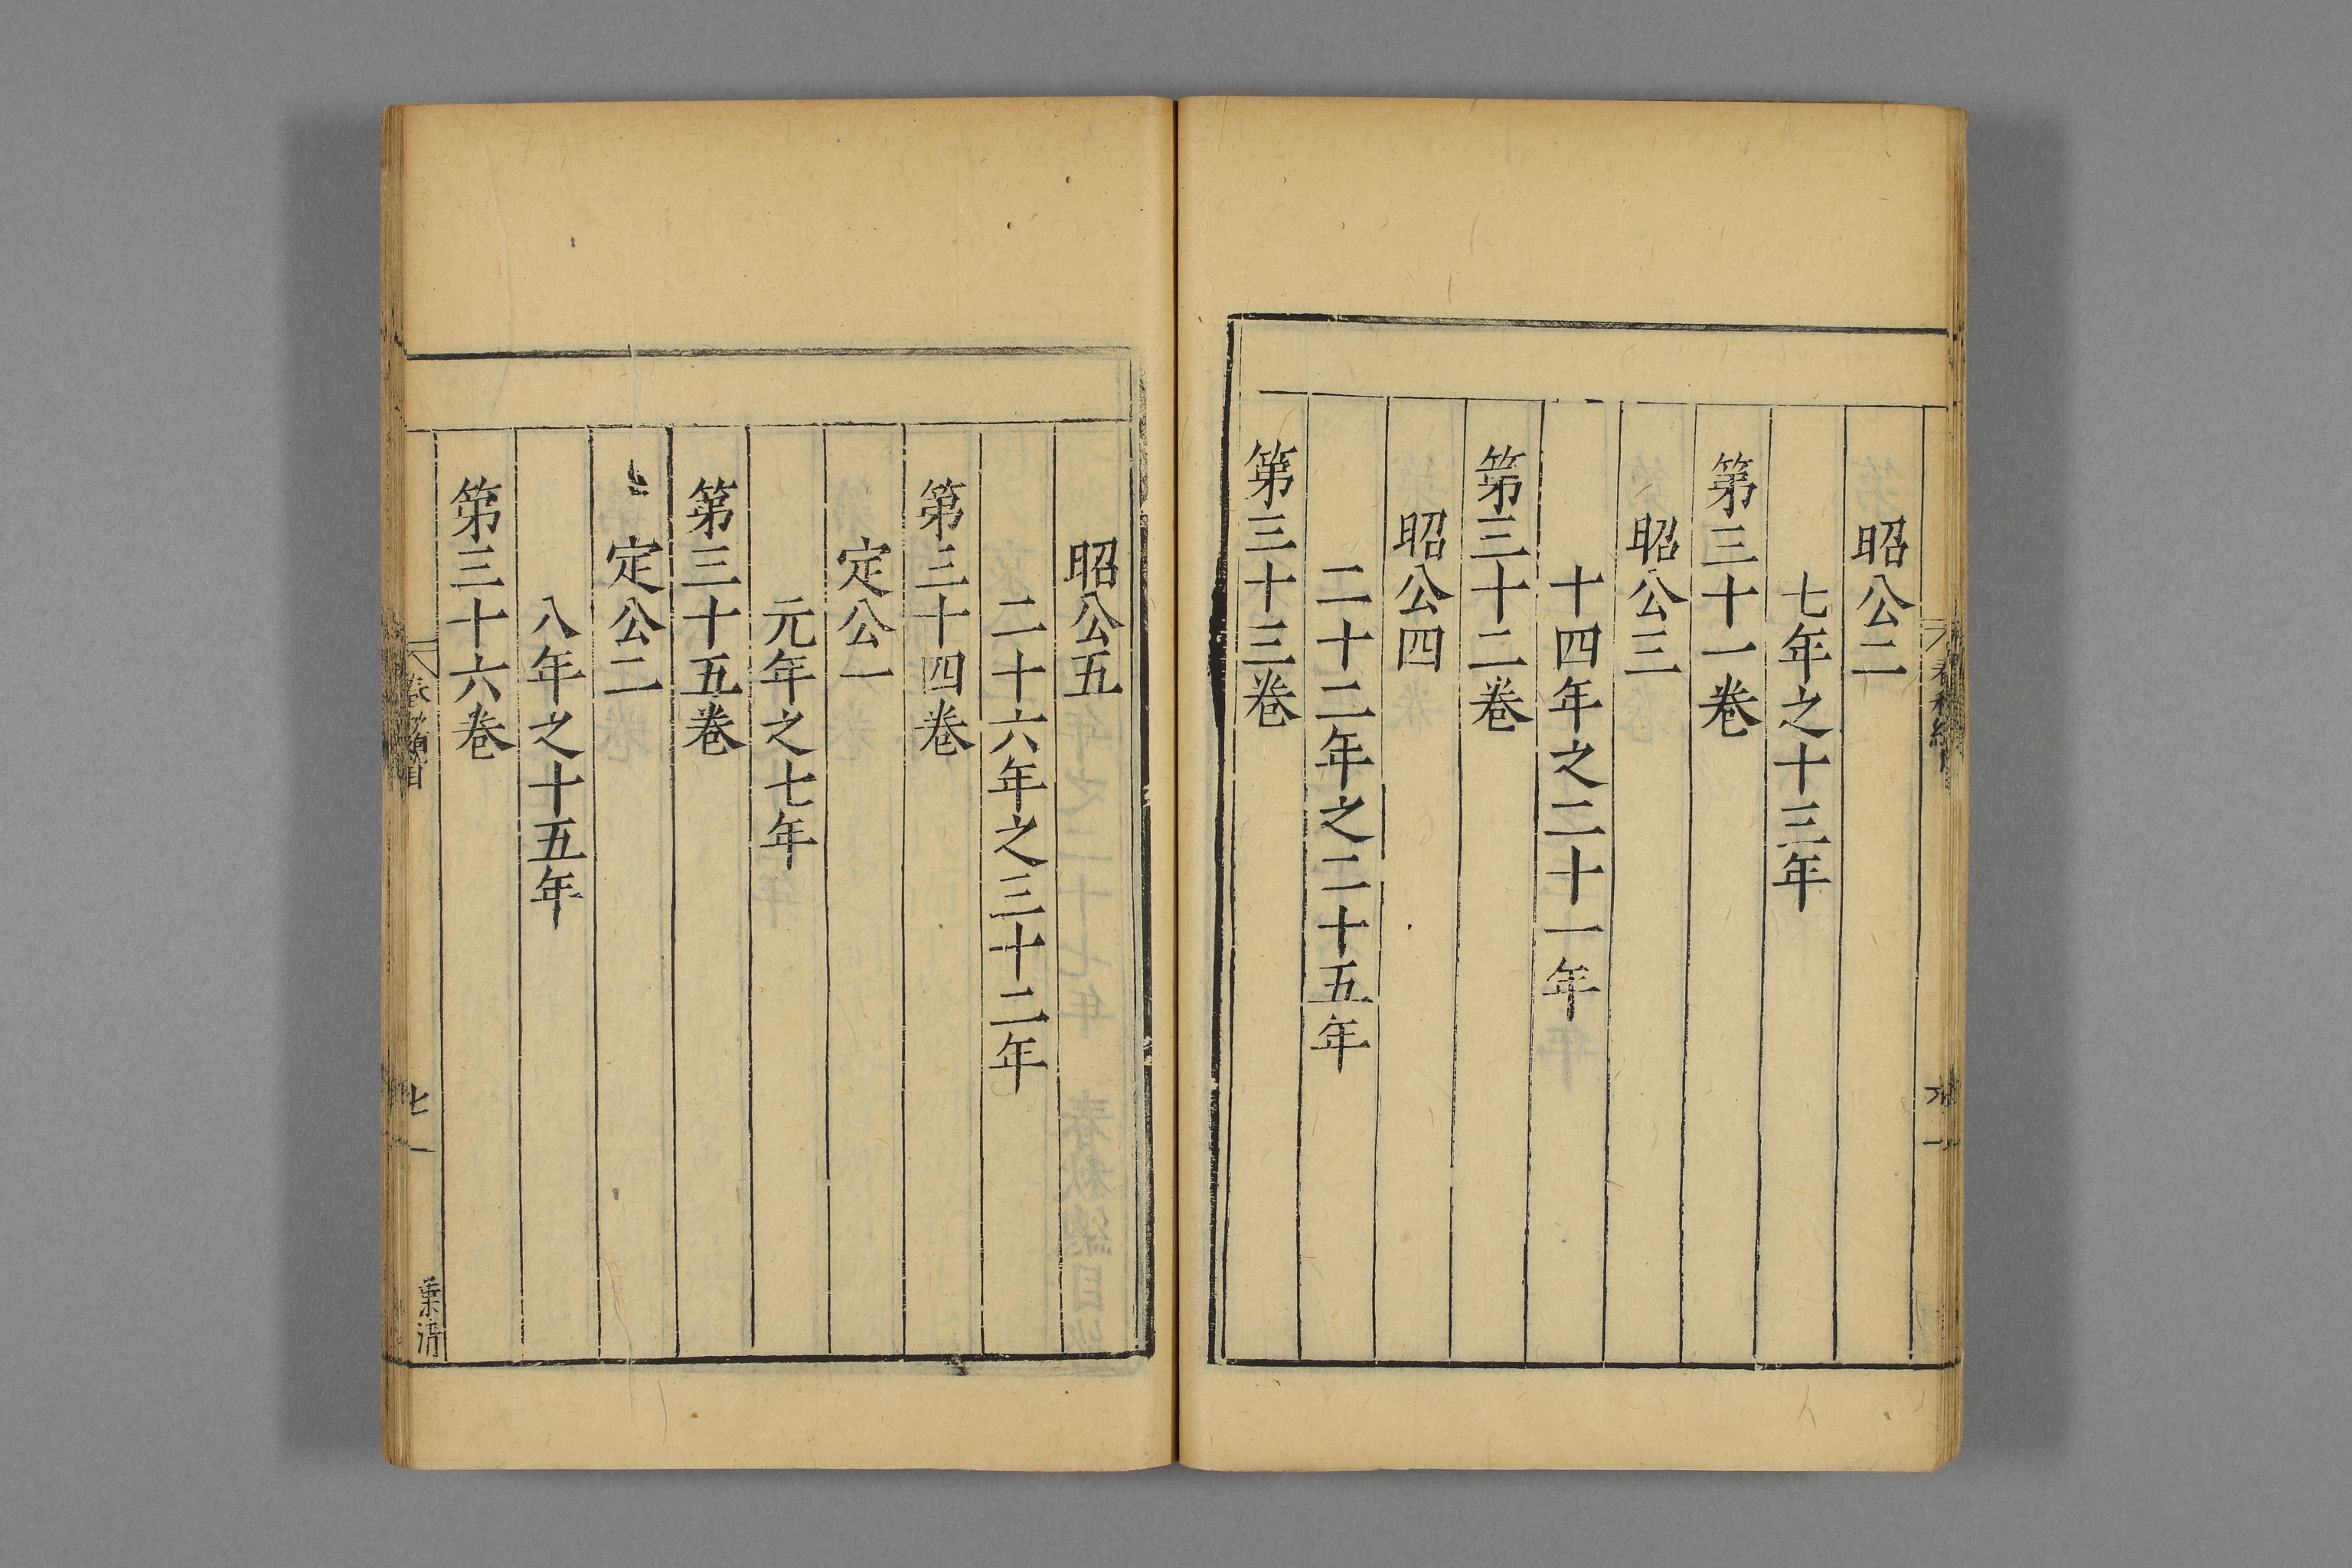 昭公二
七年之十三年
第三十一卷
昭公三
十四年之二十一年
第三十二卷
昭公四
二十二年之二十五年
第三十三卷
昭公五
二十六年之三十二年
第三十四卷
定公一
元年之七年
第三十五卷
定公二
八年之十五年
第三十六卷
七